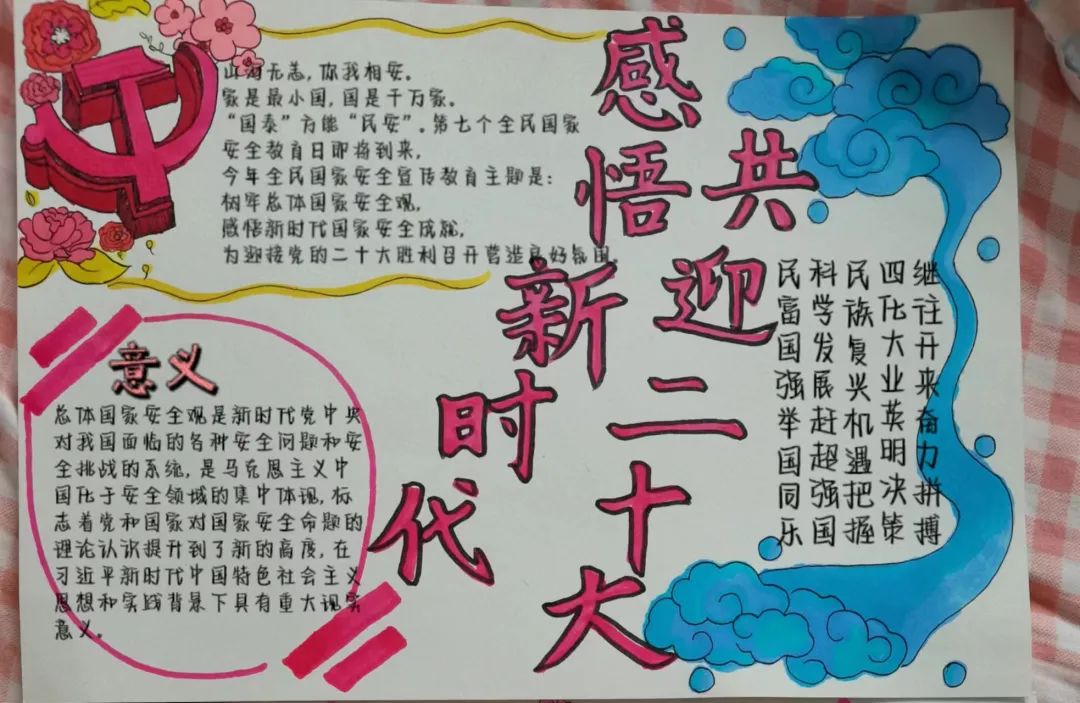 感悟新时代
共迎二十大
山河无恙,你我相安。
家是最小国,国是千万家。
“国泰”方能“民安”。第七个全民国家
安全教育日即将到来,
今年全民国家安全宣传教育主题是:
树牢总体国家安全观,
感悟新时代国家安全成就,
为迎接党的二十大胜利召开营造良好氛围。
继往开来奋力拼搏
四化大业英明决策
民族复兴机遇把握
科学发展赶超强国
民富国强举国同乐
意义
总体国家安全观是新时代党中央
对我国面临的各种安全问题和安
全挑战的系统,是马克思主义中
国化于安全领域的集中体现,标
志着党和国家对国家安全命题的
理论认识提升到了新的高度,在
习近平新时代中国特色社会主义
思想和实践背景下具有重大现实
意义。